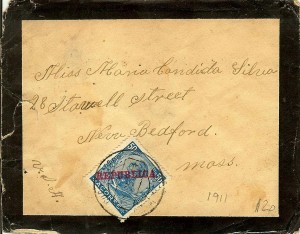 Miss Maria Candida Silva
28 Stowell Street
New Bedford.
Mass.
U.S.A.
REPUBLICA
1911
120